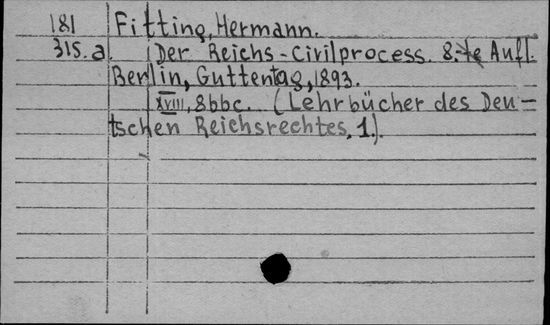 181 Fitting, Hermann.
315.a. Der Reichs-Civilprocess. 8.-te Aufl.
Berlin, Guttentag, 1893.
XVIII, 866c. (Lehrbücher des Deu-
tschen Reichsrechtes, 1.).